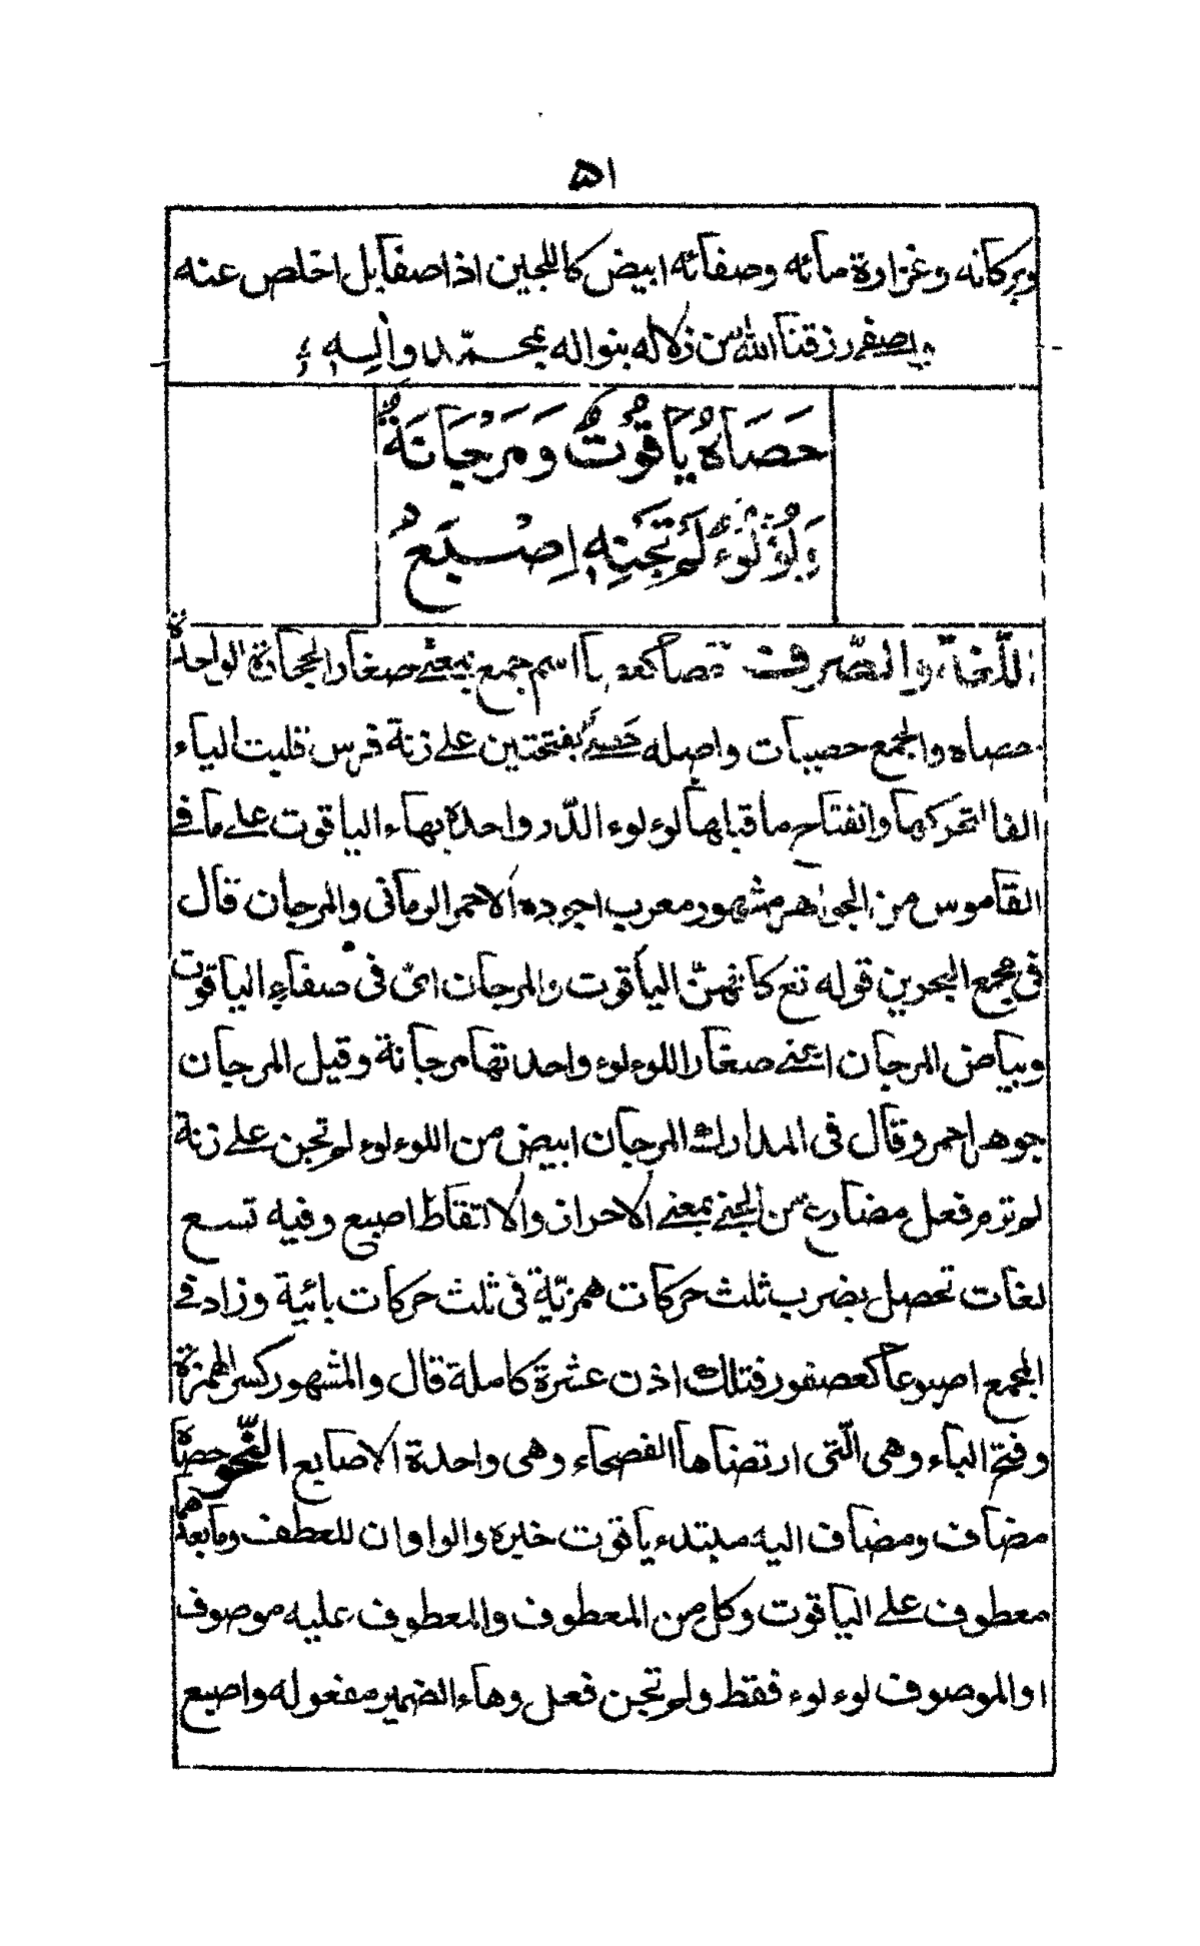 ٥١
وبركاته وغزارة مائه وصفائه ابيض كاللجين اذا صفا بل اخلص عنه
ويصفر رزقنا الله من زلاله بنواله بمحمّد وآله
حَصَاهُ يَاقُوتٌ وَمَرْجَانَةٌ
وَلُؤْلُوءٌ لَمْ تَجْنِهِ اِصْبَعُ
اللّغة والتّصرف حصا كعصا اسم جمع بمعنى صغار الحجارة الواحدة
حصاه والجمع حصيات واصله حصي بفتحتين على زنة فرس قلبت الياء
الفا لتحركها وانفتاح ما قبلها لوء لوء الدّر واحدة بهاء الياقوت على ما فى
القاموس من الجواهر مشهور معرب اجوده الاحمر الرمانى والمرجان قال
فى مجمع البحرين قوله تع كانهنّ الياقوت والمرجان اى فى صفاء الياقوت
وبياض المرجان اعنى صغار اللوء لوء واحدتها مرجانة وقيل المرجان
جوهر احمر وقال فى المدارك المرجان ابيض من اللوء لوء لم تجن على زنة
لم ترم فعل مضارع من الجنى بمعنى الاحراز والالتقاط اصبع وفيه تسع
لغات تحصل بضرب ثلث حركات همزيّة فى ثلث حركات بائية وزاد فى
المجمع اصبوعا كعصفور فتلك اذن عشرة كاملة قال والمشهور كسر الهمزة
وفتح الباء وهى الّتى ارتضاها الفصحاء وهى واحدة الاصابع النّحو حصاه
مضاف ومضاف اليه مبتدء ياقوت خبره والواوان للعطف وما بعدهما
معطوف على الياقوت وكل من المعطوف والمعطوف عليه موصوف
او الموصوف لوء لوء فقط ولم تجن فعل وهاء الضمير مفعوله واصبع